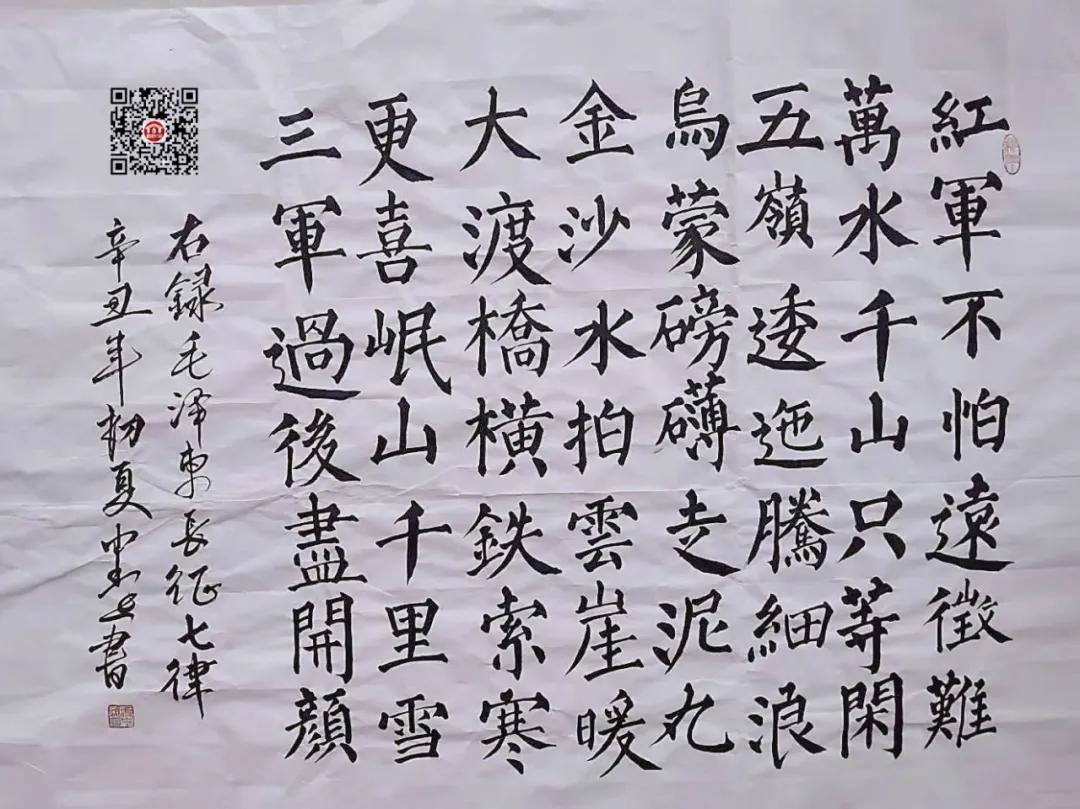 紅軍不怕遠徵難
萬水千山只等閑
五嶺逶迤騰細浪
烏蒙磅礴走泥丸
金沙水拍雲崖暖
大渡橋橫鉄索寒
更喜岷山千里雪
三軍過後盡開顏
右録毛泽東長征七律
辛丑年初夏書